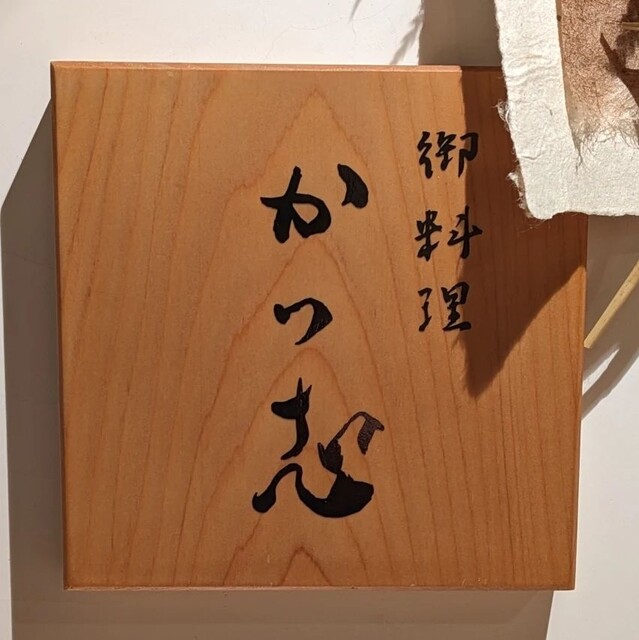 御料理
かつ